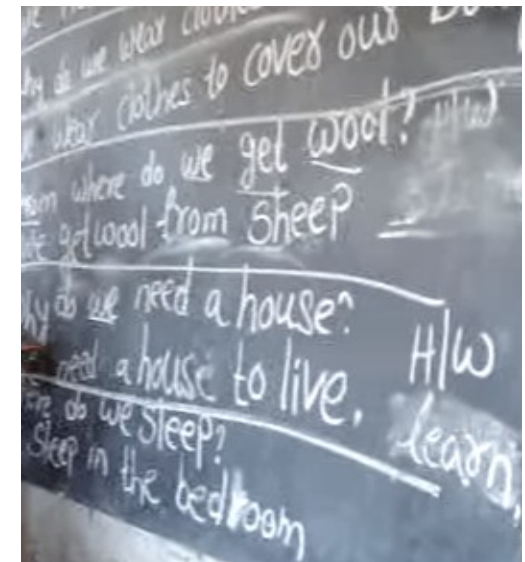 do we wear
we wear clothes to cover our
From where do we get wool? H/W
We get wool from sheep
Why do we need a house?
need a house to live. H/W
do we sleep? learn,
sleep in the bedroom